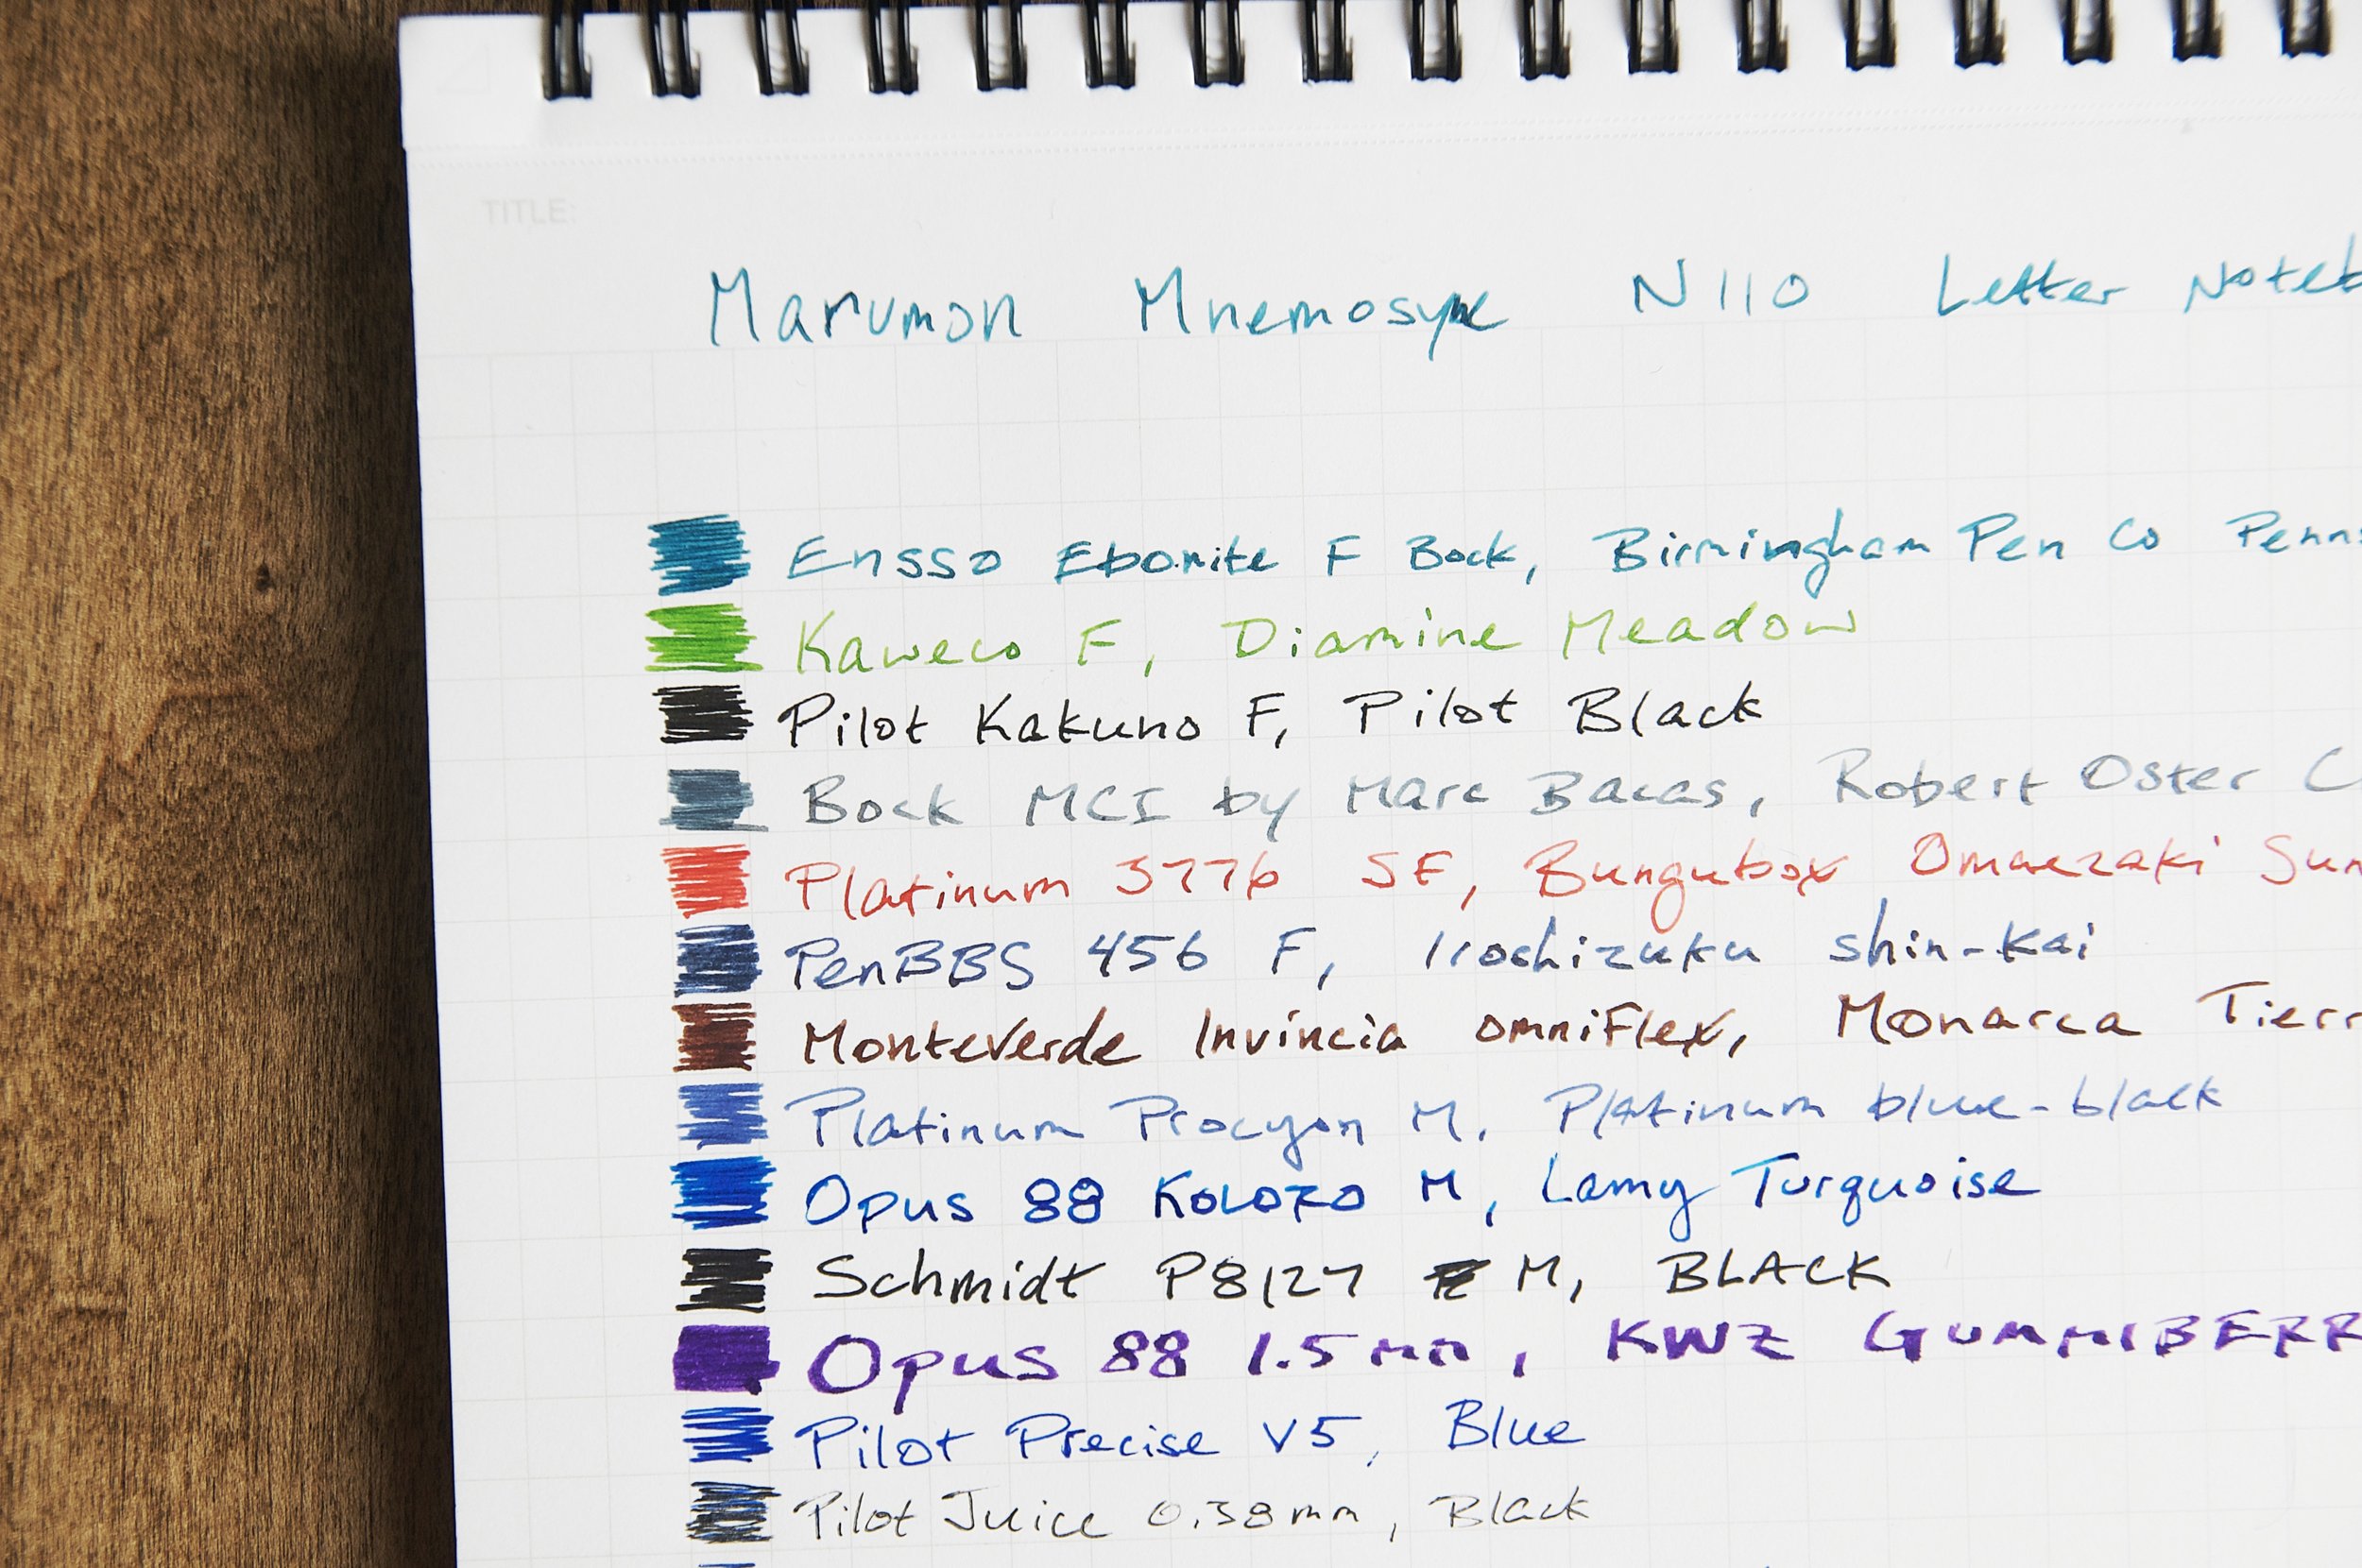 TITLE:
Marumon Mnemosyne N110 Letter Noteb
Ensso Ebonite F Bock, Birmingham Pen Co Penns
Kaweco F, Diamine Meadow
Pilot Kakuno F, Pilot Black
Bock MCI by Marc Bacas, Robert Oster C
Platinum 3776 SF, Bungubox Omaezaki Sun
PenBBS 456 F, Iroshizuku shin-kai
Monteverde Invincia omniFlex, Monarca Tierr
Platinum Procyon M, Platinum blue-black
Opus 88 Koloro M, Lamy Turquoise
Schmidt P8127 M, BLACK
Opus 88 1.5mm, KWZ GUMMIBERR
Pilot Precise V5, Blue
Pilot Juice 0.38mm, Black